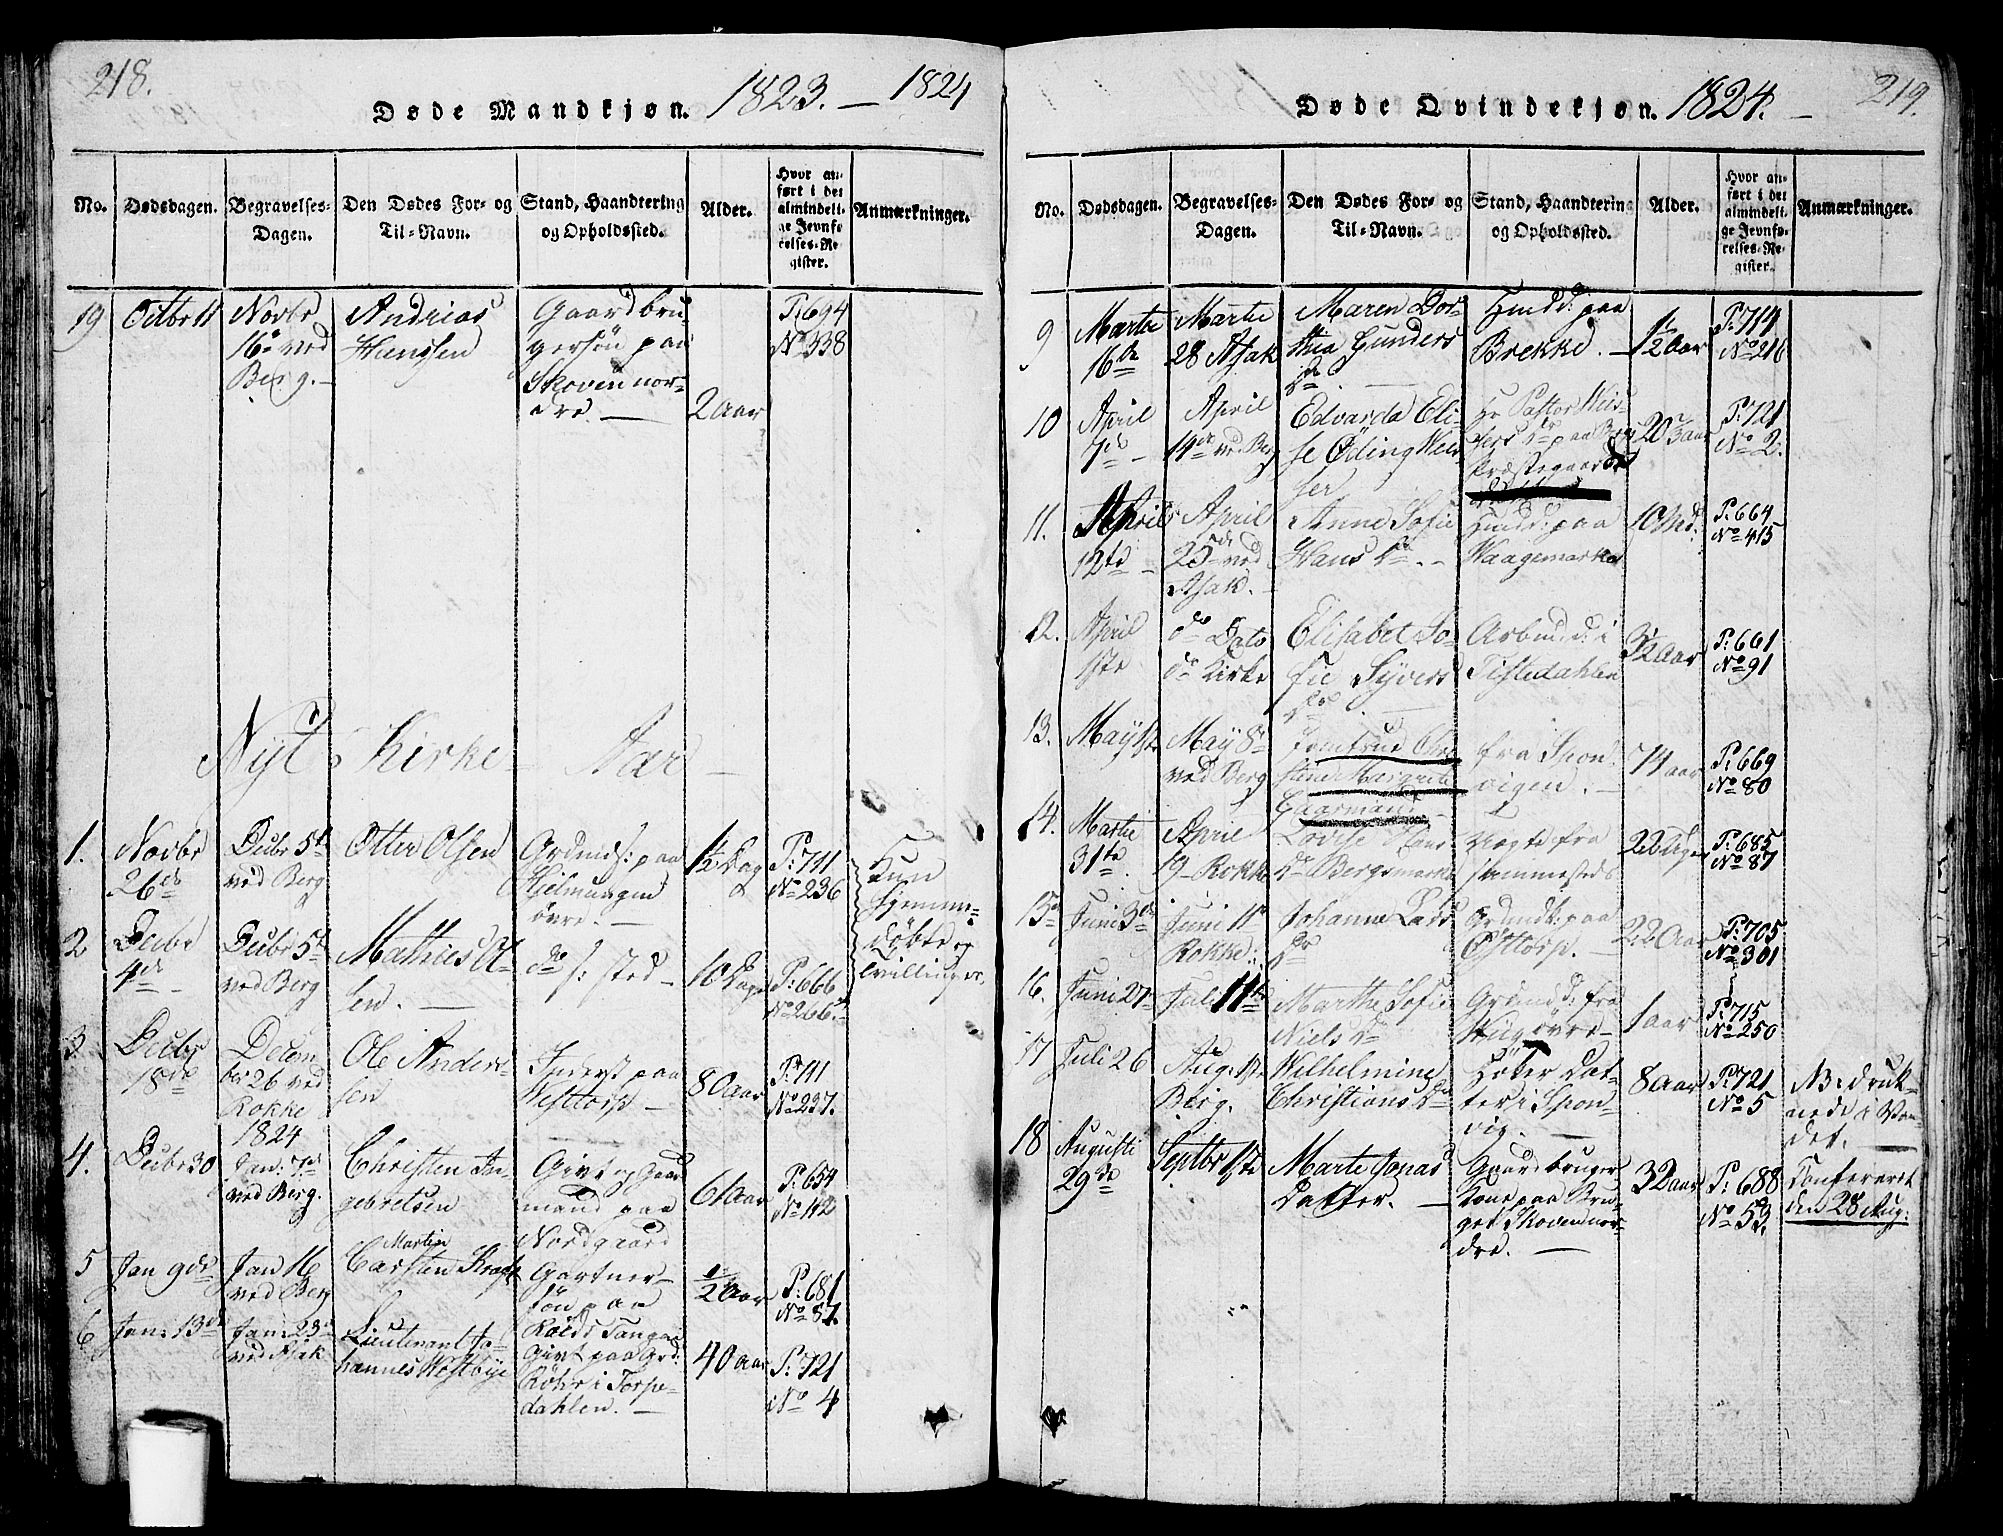 218.
Døde Mandkjøn. 1823. — 1824
No.
Dødsdagen.
Begravelses-
Dagen.
Den Dødes For- og
Til-Navn.
Stand, Haandtering
og Opholdssted.
Alder.
Hvor an-
ført i det
almindeli-
ge Jevnfø-
relses-Re-
gister.
Anmærkninger.
19 Octbr 11
Novbr
16 ved
Berg. —
Andrias
Hansen
Gaardbru-
gersøn paa
Skoven nor-
dre. —
2 Aar
P: 694
No 338
Nyt Kirke Aar —
1. Novbr
26de
Decbr 5te
ved Berg
Otter Olsen
Grdmds: paa
Hjelmungen
øvre. —
1½ Dag
P: 711
No 236
Kun
hjemme-
døbte og
tvillinger.
2 Decbr
4de —
Decbr 5te
ved Berg
Mathies Ol-
sen. —
do s: sted —
10 Dage
P: 666
No 266
3. Decbr
18de
Decem-
ber 26 ved
Rokke
Ole Ander-
sen
Inderst paa
Westtorp —
80 Aar
P: 711
No 237.
4. Decbr 30
1824
Jan: 7de
ved Berg.
Christen In-
gebretsen
Givt og Gaard
mand paa
Nordgaard
61 Aar
P: 654
No 112
5 Jan 9de
Jan 16
ved Berg
Martin
Carsten Kraft
Gartner-
søn paa
Røeds Tangen
½ Aar
P: 681
No 87.
6 Jan: 13de
Jan: 23de
ved Asak
Lieutenant Jo-
hannes Westbye
Givt paa Grd:
Röhr i Torpe-
dahlen. —
40 Aar
P: 721
No 4
219.
Døde Qvindekjøn. 1824. —
No.
Dødsdagen.
Begravelses-
Dagen.
Den Dødes For- og
Til-Navn.
Stand, Haandtering
og Opholdssted.
Alder.
Hvor an-
ført i det
almindeli-
ge Jevnfø-
relses-Re-
gister.
Anmærkninger.
9 Martii
16de
Martii
28 Asak
Maren Dor-
thea Gunders
Dr. —
Husmd: paa
Brekke. —
½ Aar
P: 714
No 216
10 April
7de —
April
14de ved Berg
Edvarda Eli-
se Öding Wei-
ser
Hr Pastor Wei-
sers Dr paa Berg
Præstegaard
20 3/ Aar
P: 721
No 2.
11. April
12te —
April
25de ved
Asak. —
Anne Sofie
Hans Dr. —
Husmd: paa
Waagemarken
10 Md:
P: 664
No 415
12. April
1ste
do Dato
do Kirke
Elisabet So-
fie Syvers
Dr. —
Arbmd: i
Tistedahlen
3½ Aar
P: 661
No 91
13. May 1ste
May 8de
ved Berg
Jomfrue Chri-
stine Margrete
Gaarmand
fra Spon-
vigen. —
74 aar
P: 669
No 80
14. Martii
31te
April
19 — Rokke
Lovise Hans
Dr Bergsmarke
Vogte fra
Skimmestad
22 Uger
P: 685
No 87
15 Juni 3de
Juni 11te
Rokke:
Johanne Lars
Dr
Grdmd: paa
Østtorp. —
22 Aar
P: 705
No 301
16. Juni 27
Juli 11te
Marthe Sofie
Niels Dr
Grdmd: fra
øvre —
1 aar
P: 715
No 250
17 Juli 26
Aug. 1ste
Berg.
Wilhelmine
Christians Dr
Høker Dat-
ter i Spon-
vig. —
8 Aar
P: 721
No 5
NB: druk-
nede i Van-
det. —
18 Augusti
29de
Septbr 1ste
Marte Jonas
Datter. —
Gaardbruger
Kone paa Bru-
get Skoven nor-
dre. —
32 aar
P: 688
No 59.
Confereret
den 28 Aug: